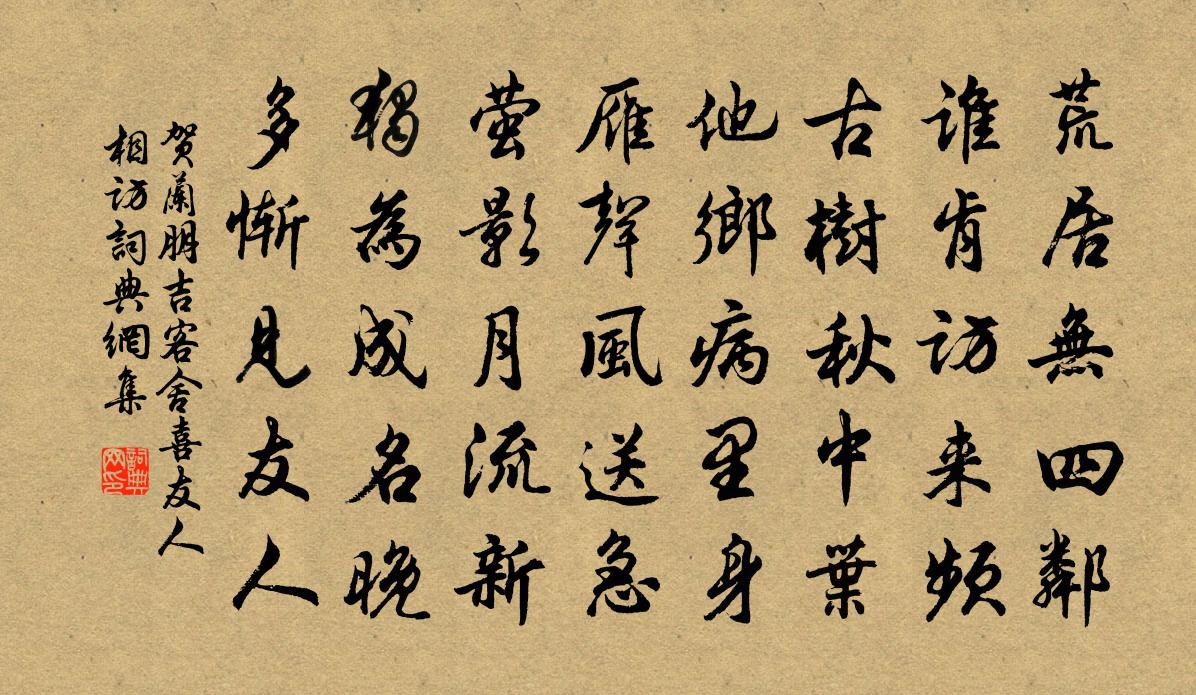 荒居無四鄰
谁肯访来频
古樹秋中葉
他鄉病里身
雁聲風送急
萤影月流新
獨為成名晚
多慚見友人
贺蘭朋吉客舍喜友人
相访詞典網集
詞典网印